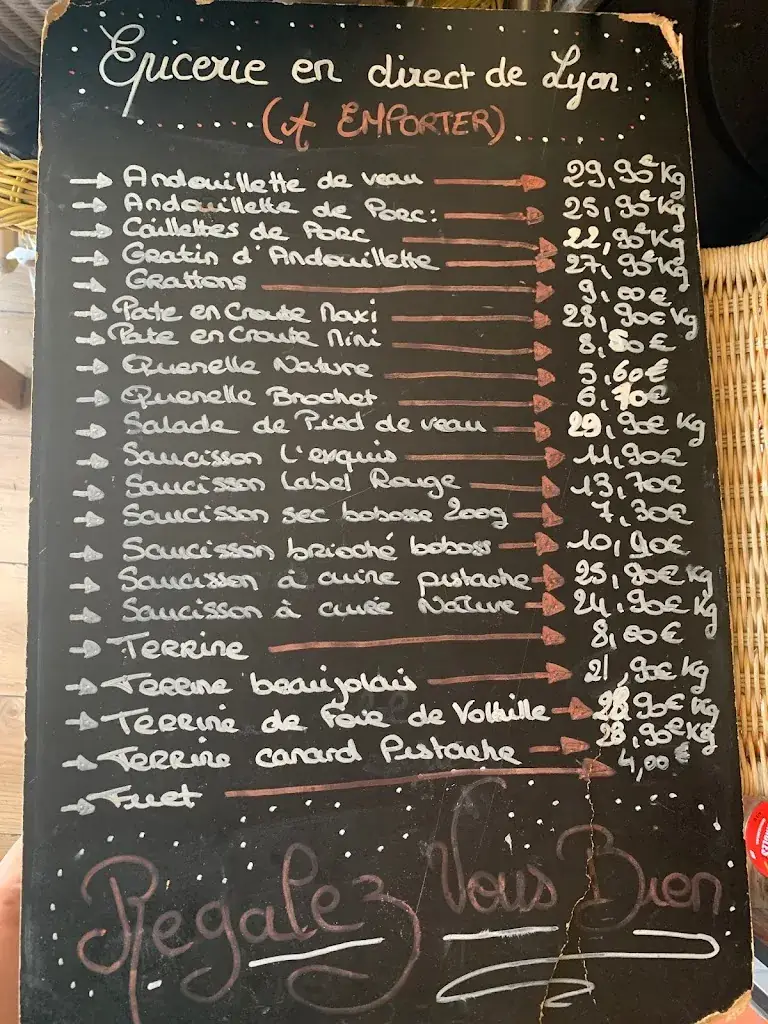 Epicerie en direct de Lyon.
(A EMPORTER)
Andouillette de veau 29,90€ Kg
Andouillette de Porc: 25,90€ Kg
Caillettes de Porc 22,90€ Kg
Gratin d'Andouillette 27,90€ Kg
Grattons 9,00€
Pate en Croute Maxi 28,90€ Kg
Pate en Croute Mini 8,50€
Quenelle Nature 5,60€
Quenelle Brochet 6,70€
Salade de Pied de veau 29,90€ Kg
Saucisson l'exquis 11,90€
Saucisson Label Rouge 13,70€
Saucisson sec bobosse 200g 7,30€
Saucisson brioché boboss 10,90€
Saucisson à cuire pistache 25,90€ Kg
Saucisson à cuire Nature 24,90€ Kg
Terrine 8,00€
Terrine beaujolais 21,90€ Kg
Terrine de Foie de Volaille 28,90€ Kg
Terrine canard Pistache 28,90€ Kg
Fuet 4,00€
Regalez Vous Bien